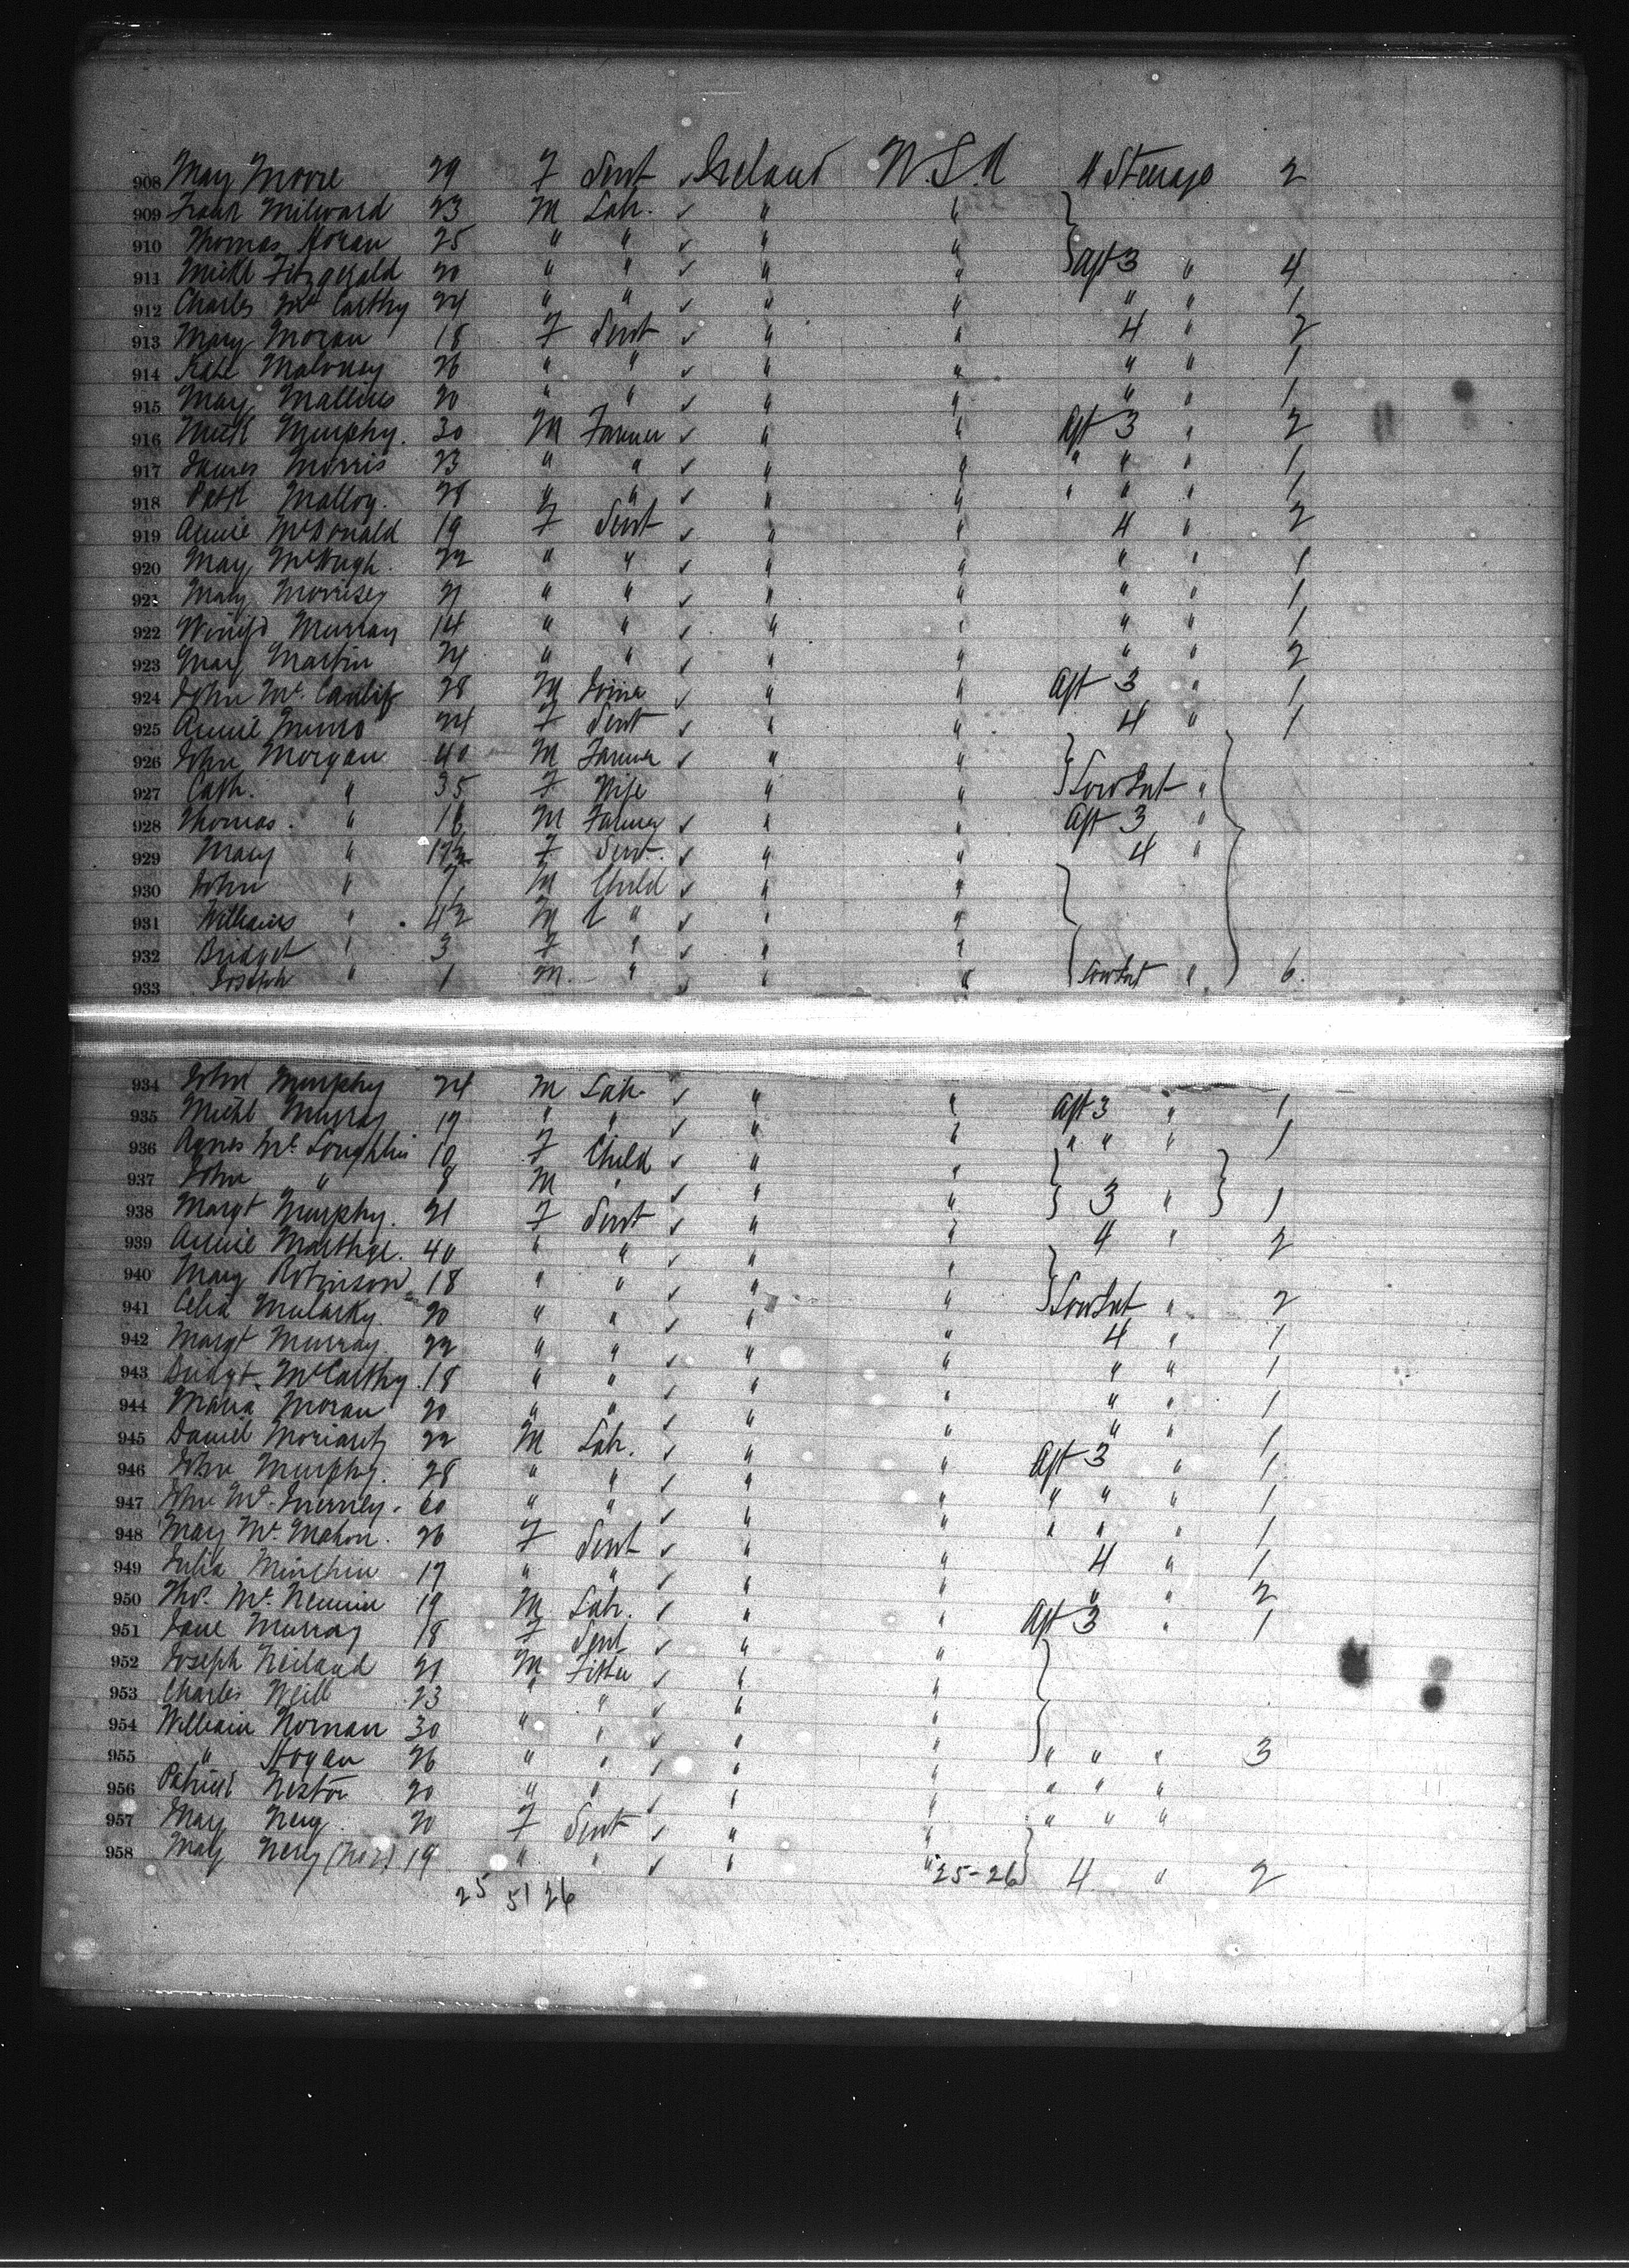 908 Mary Moore 29 F Servt ✓ Ireland U.S.A 4 Steerage 2
909 Frank Milward 23 M Lab. ✓ " "
910 Thomas Horan 25 " " ✓ " "
911 Michl Fitzgerald 20 " " ✓ " " Aft 3 " 4
912 Charles McCarthy 24 " " ✓ " " " " 1
913 Mary Moran 18 F Servt ✓ " " 4 " 2
914 Kate Maloney 26 " " ✓ " " " " 1
915 Mary Mallins 20 " " ✓ " " " " 1
916 Michl Murphy. 30 M Farmer ✓ " " Aft 3 " 2
917 James Morris 23 " " ✓ " " " " " 1
918 Patk Malloy. 28 " " ✓ " " " " " 1
919 Annie McDonald 19 F Servt ✓ " " 4 " 2
920 Mary McHugh. 22 " " ✓ " " " " 1
921 Mary Morrisey 21 " " ✓ " " " " 1
922 Winifd Murray 14 " " ✓ " " " " 1
923 Mary Martin 24 " " ✓ " " " " 2
924 John Mc. 28 M ✓ " " Aft 3 " 1
925 Annie Munro 24 F Servt ✓ " " 4 " 1
926 John Morgan 40 M Farmer ✓ " "
927 Cath. " 35 F Wife " " Low Int "
928 Thomas. " 16 M Farmer ✓ " " Aft 3 "
929 Mary " F Servt. ✓ " " 4 "
930 John " 7 M Child ✓ " "
931 William " 4½ M " ✓ " "
932 Bridget " 3 F " ✓ " "
933 Joseph " 1 M. " ✓ " " Low Int " 6.
934 John Murphy 24 M Lab. ✓ " " Aft 3 " 1
935 Michl Murray 19 " " ✓ " " " " " 1
936 Agnes McLoughlin 10 F Child ✓ " "
937 John " 8 M " ✓ " " 3 " 1
938 Margt Murphy. 21 F Servt ✓ " " 4 " 2
939 Annie 40 " " ✓ " "
940 Mary Robinson 18 " " ✓ " " Low Int " 2
941 Celia Mularky. 20 " " ✓ " " 4 " 1
942 Margt Murray. 22 " " ✓ " " " " 1
943 Bridgt. McCarthy. 18 " " ✓ " " " " 1
944 Maria Moran 20 " " ✓ " " " " 1
945 Daniel Moriarty 22 M Lab. ✓ " " Aft 3 " 1
946 John Murphy. 28 " " ✓ " " " " " 1
947 John Mc. Inerney. 60 " " ✓ " " " " " 1
948 Mary Mc. Mahon. 26 F Servt ✓ " " 4 " 1
949 Julia Minchin 17 " " ✓ " " " " 2
950 Thos. Mc. 19 M Lab. ✓ " " Aft 3 " 1
951 Jane Murray 18 F Servt ✓ " "
952 Joseph Neiland 21 M Fitter ✓ " "
953 Charles Neill 23 " " ✓ " "
954 William Noman 30 " " ✓ " " " " " 3
955 " Hogan 26 " " ✓ " " " " "
956 Patrick Nestor 20 " " ✓ " " " " "
957 Mary Nery. 20 F Servt ✓ " "
958 Mary Nery (No 2) 19 " " ✓ " " 25-26 4 " 2
25 51 26